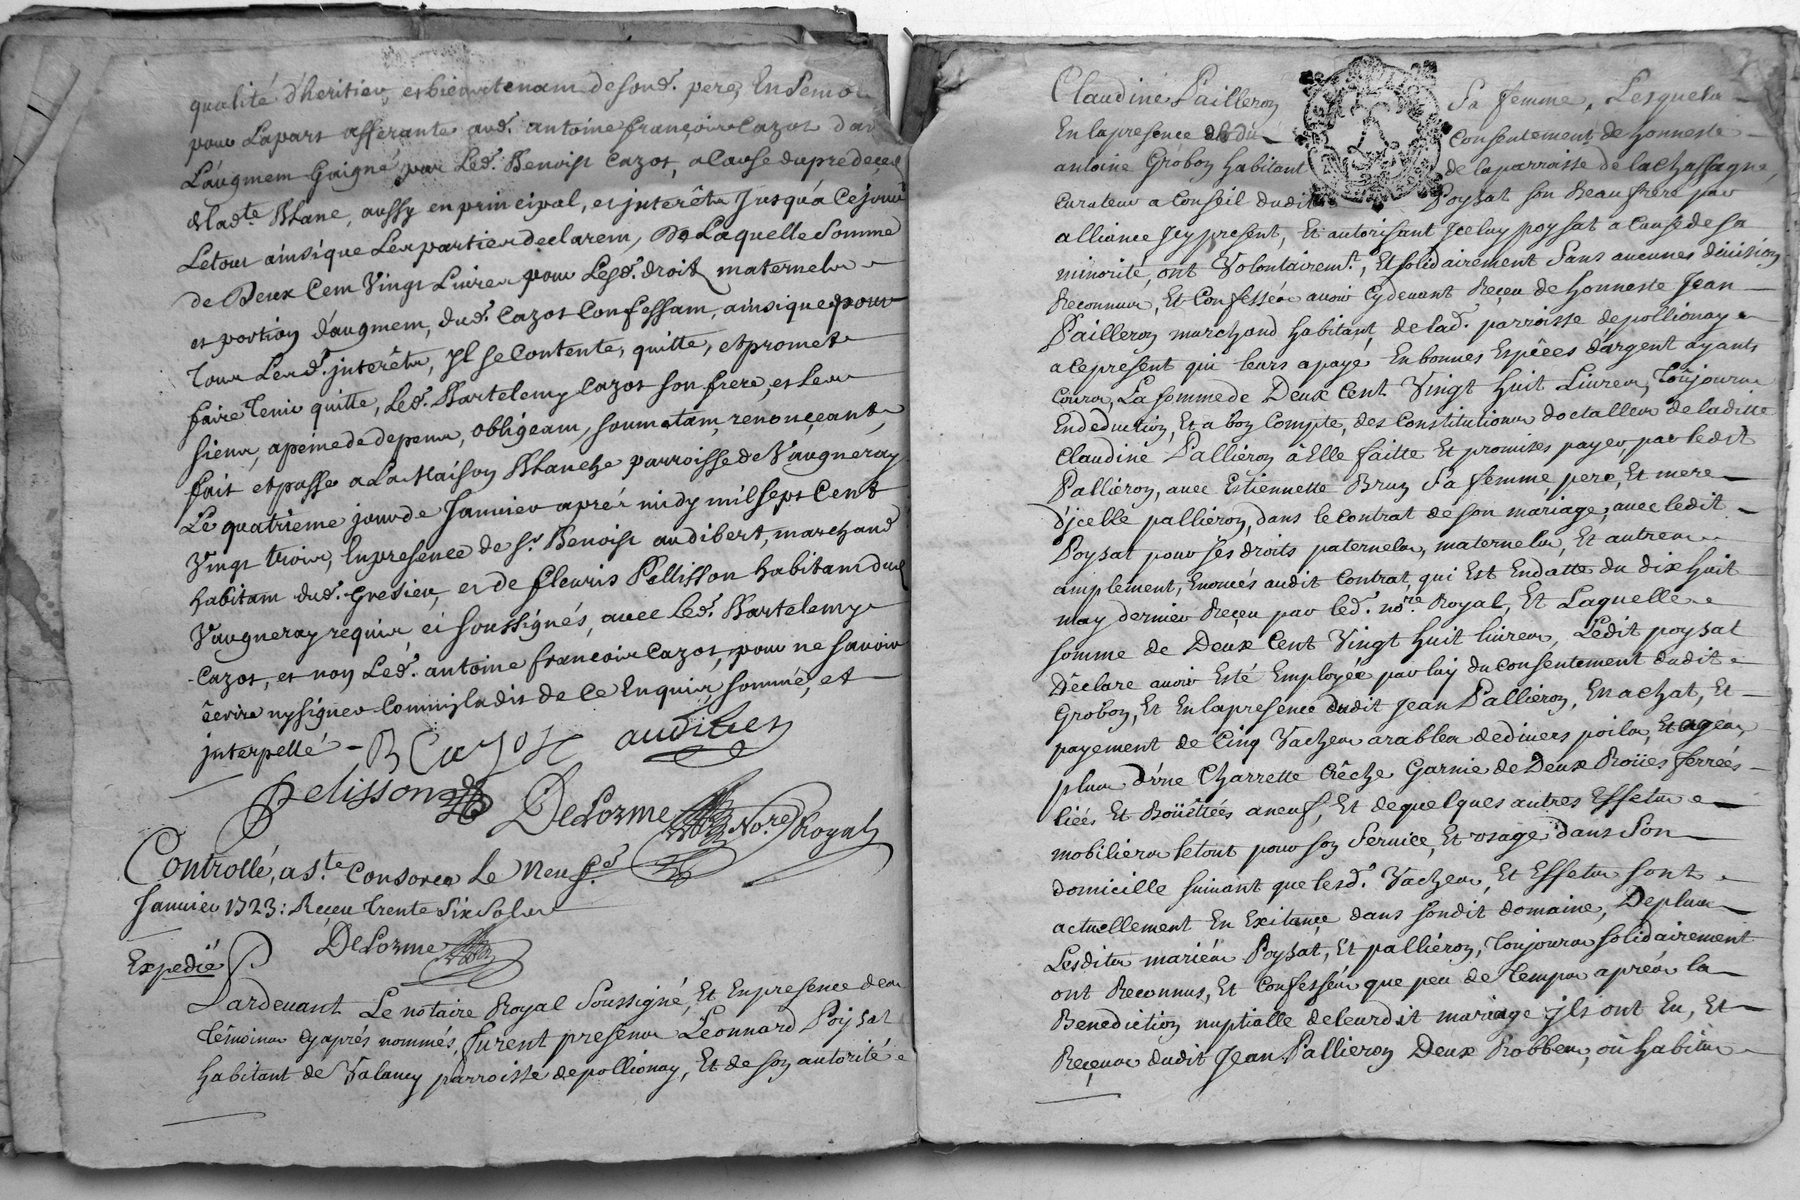 qualité d'heritier, et bientenant de sond. pere, En semble
pour Lapart afferante aud. antoine françois Cazot dans
L'augment Gaigné par Led. Benoist Cazot, a Cause du predeces
de lad.te Blanc, aussy en principal, et interêts Jusqu'a Cejourd
Letout ainsique Les parties declarent, De Laquelle Somme
de Deux Cent Vingt Livres pour Lesd. droits maternels
et portion d'augment, dud. Cazot Confessant, ainsique pour
Tous Lesd. interêts, Il se Contente, quitte, et promet
faire Tenir quitte, Led. Bartelemy Cazot son frere, et Les
siens, apeine de depens, obligeant, soumetant, renonçeant,
fait et passé a La Maison Blanche parroisse de Vaugneray
Le quatrieme jour de Janvier aprés midy mil sept Cent
Vingt trois, En presence de Sr. Benoist audibert, marchand
habitant dud. Gresieu, et de fleuris Pellisson habitant dud
Vaugneray requis et soussignés, avec led. Bartelemy
Cazot, et non Led. antoine françois Cazot, pour ne savoir
écrire ny signer Comm'il a dit de Ce Enquis, sommé, et
interpellé - B Cazot audiber
Pelisson Delorme No.re Royal
Controllé, a S.te Consorce Le Neuf
Janvier 1723: Reçeu Trente Six Sols
Delorme
Expedié
Pardevant Le notaire Royal Soussigné, Et En presence des
Témoins cyaprés nommés, furent presens Léonnard Poysat
habitant de Valancy parroisse de pollionay, Et de son autorité
Claudine Pailleron Sa femme, Lesquels
En la presence du Consentement de honneste
antoine Grobon habitant de la parroisse de la Chassagne,
Curateur a Conseil dudit Poysat son Beaufrere par
alliance Jcy present, Et autorisant Jceluy poysat a Cause de sa
minorité, ont Volontairemt., Et solidairement Sans aucunes division
Reconnus, Et Confessés avoir Cydevant Reçeu de honneste Jean
Pailleron marchand habitant, de lad. parroisse de pollionay
a ce present qui leurs a payé En bonnes Espêces d'argent ayants
Cours, La somme de Deux Cent Vingt huit Livres, Toûjours
En deduction, Et a bon Compte, des Constitutions doctalles de laditte
Claudine Palliéron à Elle faitte Et promises payer, par ledit
Palliéron, avec Estiennette Brun Sa femme pere, Et mere
d'jcelle palliéron, dans le Contrat de son mariage, avec ledit
Poysat pour ses droits paternels, maternels, Et autres
amplement, Enoncés audit Contrat, qui Est Endatte du dix huit
may dernier Reçeu par led. no.re Royal, Et Laquelle
somme de Deux Cent Vingt huit livres, Ledit poysat
Déclare avoir Esté Employée par luy du Consentement dudit
Grobon, Et En la presence dudit Jean Palliéron, En achat, Et
payement de Cinq Vaches arables de divers poils, Et ages,
plus d'une Charrette Crêche Garnie de Deux Roües ferrées
liées Et Boüettées a neuf, Et de quelques autres Effets
mobiliers le tout pour son Service, Et usage dans Son
domicille suivant que lesd. Vaches, Et Effets sont
actuellement En Exitance dans sondit domaine, De plus
Lesdits mariés Poysat, Et palliéron, Toujours solidairement
ont Reconnus, Et Confessés que peu de Temps aprés la
Benediction nuptialle de leurdit mariage jls ont Eu, Et
Reçeus dudit Jean Pallieron Deux Robbes, ou habits